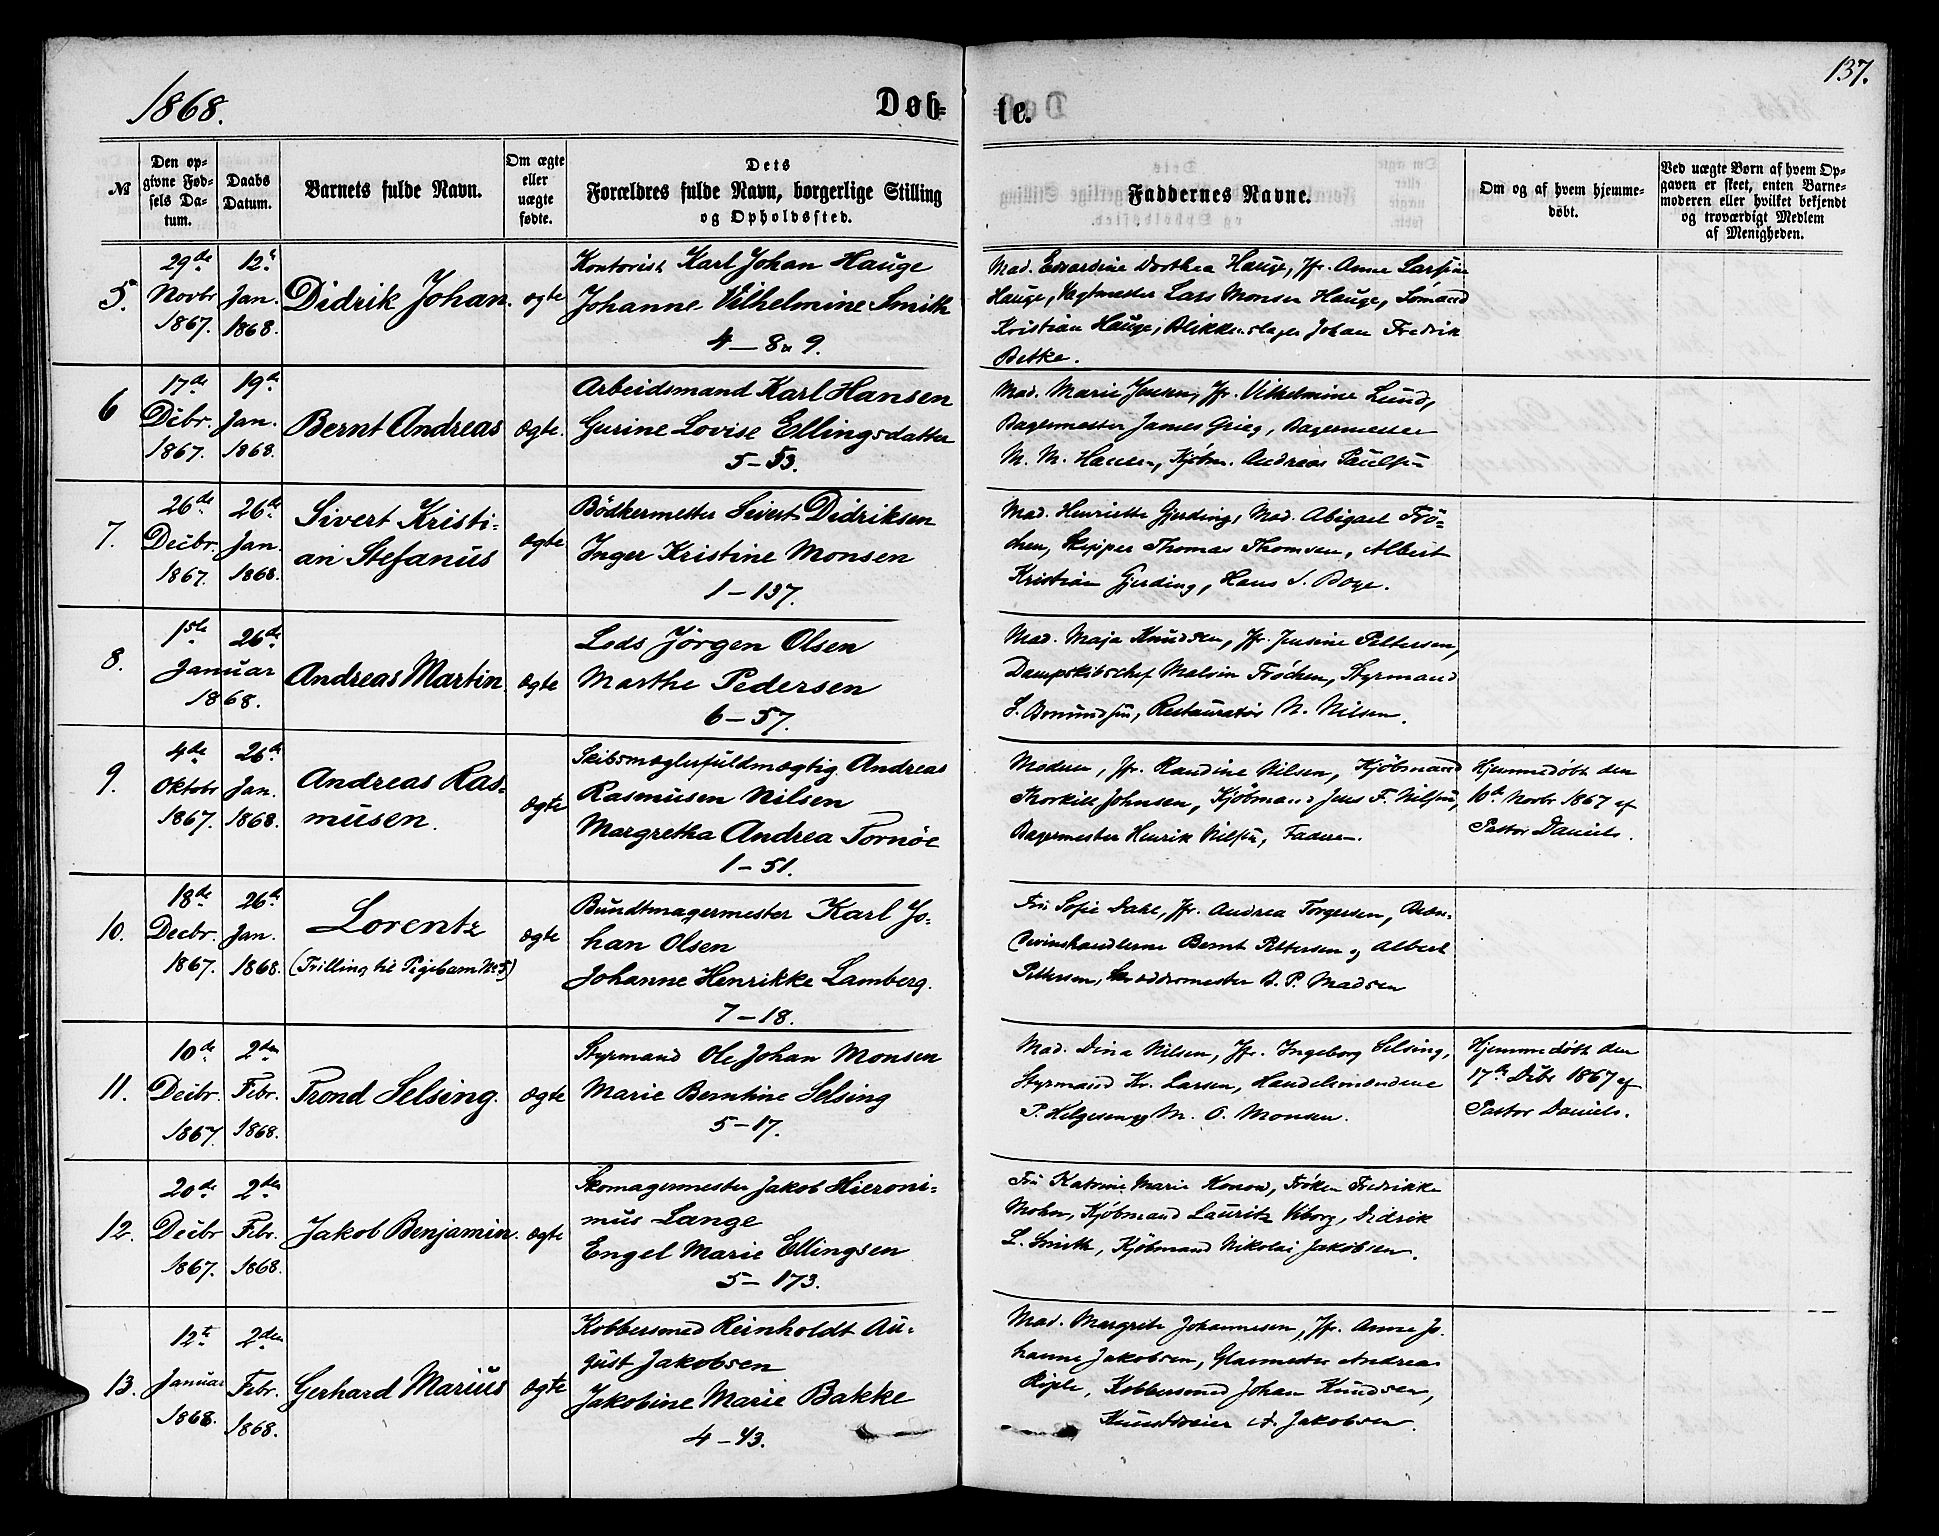 1868.
Døb-
te.
137.
№
Den op-
givne Fød-
sels Da-
tum.
Daabs
Datum.
Barnets fulde Navn.
Om ægte
eller
uægte
fødte.
Dets
Forældres fulde Navn, borgerlige Stilling
og Opholdssted.
Faddernes Navne.
Om og af hvem hjemme-
døbt.
Ved uægte Børn af hvem Op-
gaven er skeet, enten Barne-
moderen eller hvilket bekjendt
og troværdigt Medlem
af Menigheden.
5.
29de
Novbr
1867.
12te
Jan.
1868.
Didrik Johan.
ægte
Kontorist Karl Johan Hauge
Johanne Vilhelmine Smith
4 – 8 & 9.
Mad. Edvardine Dorthea Hauge, Jfr. Anne Larsine
Hauge, Vagtmester Lars Monsen Hauge, Sömand
Kristian Hauge, Blikkenslager Johan Fredrik
Betke.
6
17de
Decbr.
1867.
19de
Jan.
1868.
Bernt Andreas
ægte.
Arbeidsmand Karl Hansen
Gurine Lovise Ellingsdatter
5 – 53.
Mad. Marie Jensen, Jfr. Vilhelmine Lund,
Bagermester James Grieg, Bagermester
M. M. Hansen, Kjöbm. Andreas Paulsen
7.
26de
Decbr.
1867.
26de
Jan.
1868.
Sivert Kristi-
an Stefanus
ægte
Bödkermester Sivert Didriksen
Inger Kristine Monsen
1 – 137.
Mad. Henriette Gjerding, Mad. Abigael Frö-
chen, Skipper Thomas Thomsen, Albert
Kristian Gjerding, Hans S. Boge.
8.
1ste
Januar
1868.
26de
Andreas Martin.
ægte
Lods Jörgen Olsen
Marthe Pedersen
6 – 57.
Mad. Maja Knudsen, Jfr. Jensine Pettersen,
Dampskibschef Malvin Fröchen, Styrmand
Restauratör N. Nilsen.
9.
4de
Oktobr
1867.
26de
Jan.
1868.
Andreas Ras-
musen.
ægte
Skibsmæglerfuldmægtig Andreas
Rasmusen Nilsen
Margretha Andrea Tornöe
1 – 51.
Moderen, Jfr. Randine Nilsen, Kjöbmand
Thorkild Johnsen, Kjöbmand Jens F. Nilsen,
Bagermester Henrik Nilsen, Faderen.
Hjemmedöbt den
10de Novbr 1867 af
Pastor Daniels.
10.
18de
Decbr.
1867.
26de
Jan.
1868.
Lorentz
(Trilling til Pigebarn No 5)
ægte
Bundtmagermester Karl Jo-
han Olsen
Johanne Henrikke Lamberg.
7 – 18.
Fru Sofie Dahl, Jfr. Andrea Torgersen, Bræn-
devinshandlerne Bernt Pettersen og Albert
Pettersen, Skræddermester B. P. Madsen
11.
10de
Decbr.
1867.
2den
Febr.
1868.
Trond Selsing.
ægte
Styrmand Ole Johan Monsen
Marie Berntine Selsing
5 – 17.
Mad. Dina Nilsen, Jfr. Ingeborg Selsing,
Styrmand Kr. Larsen, Handelsmændene
P. Helgesen og M. O. Monsen.
Hjemmedöbt den
17de Decbr 1867 af
Pastor Daniels.
12.
20de
Decbr
1867.
2den
Febr.
1868.
Jakob Benjamin.
ægte
Skomagermester Jakob Hieroni-
mus Lange
Engel Marie Ellingsen
5 – 173.
Fru Katrine Marie Konow, Fröken Fredrikke
Mohn, Kjöbmand Lauritz Wiborg, Didrik
L. Smith, Kjöbmand Nikolai Jakobsen.
13.
12te
Januar
1868.
2den
Febr.
1868.
Gerhard Marius
ægte
Kobbersmed Reinholdt Au-
gust Jakobsen
Jakobine Marie Bakke
4 – 43.
Mad. Margrete Johannesen, Jfr. Anne Jo-
hanne Jakobsen, Glarmester Andreas
Riple, Kobbersmed Johan Knudsen,
Kunstdreier A. Jakobsen.